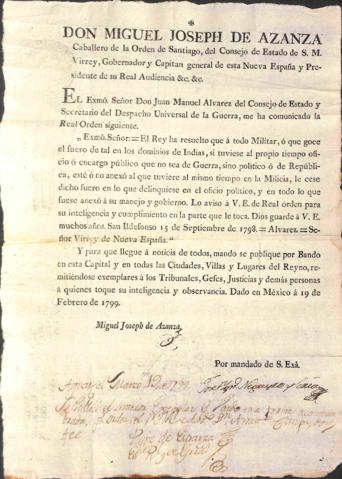 DON MIGUEL JOSEPH DE AZANZA
Caballero de la Orden de Santiago, del Consejo de Estado de S. M.
Virrey, Gobernador y Capitan general de esta Nueva España y Pre-
sidente de su Real Audiencia &c. &c.
EL Exmô. Señor Don Juan Manuel Alvarez del Consejo de Estado y
Secretario del Despacho Universal de la Guerra, me ha comunicado la
Real Orden siguiente.
„ Exmô. Señor: = El Rey ha resuelto que à todo Militar, ó que goce
el fuero de tal en los dominios de Indias, si tuviese al propio tiempo ofi-
cio ó encargo público que no sea de Guerra, sino político ó de Repúb-
lica, esté ó no anexô al que tuviere al mismo tiempo en la Milicia, le cese
dicho fuero en lo que delinquiese en el oficio político, y en todo lo que
fuese anexô á su manejo y gobierno. Lo aviso á V. E. de Real órden para
su inteligencia y cumplimiento en la parte que le toca. Dios guarde á V. E.
muchos años. San Ildefonso 15 de Septiembre de 1798. = Alvarez. = Se-
ñor Virrey de Nueva España. "
Y para que llegue á noticia de todos, mando se publique por Bando
en esta Capital y en todas las Ciudades, Villas y Lugares del Reyno, re-
mitiéndose exemplares á los Tribunales, Gefes, Justicias y demás personas
á quienes toque su inteligencia y observancia. Dado en México á 19 de
Febrero de 1799.
Miguel Joseph de Azanza.
Por mandado de S. Exâ.